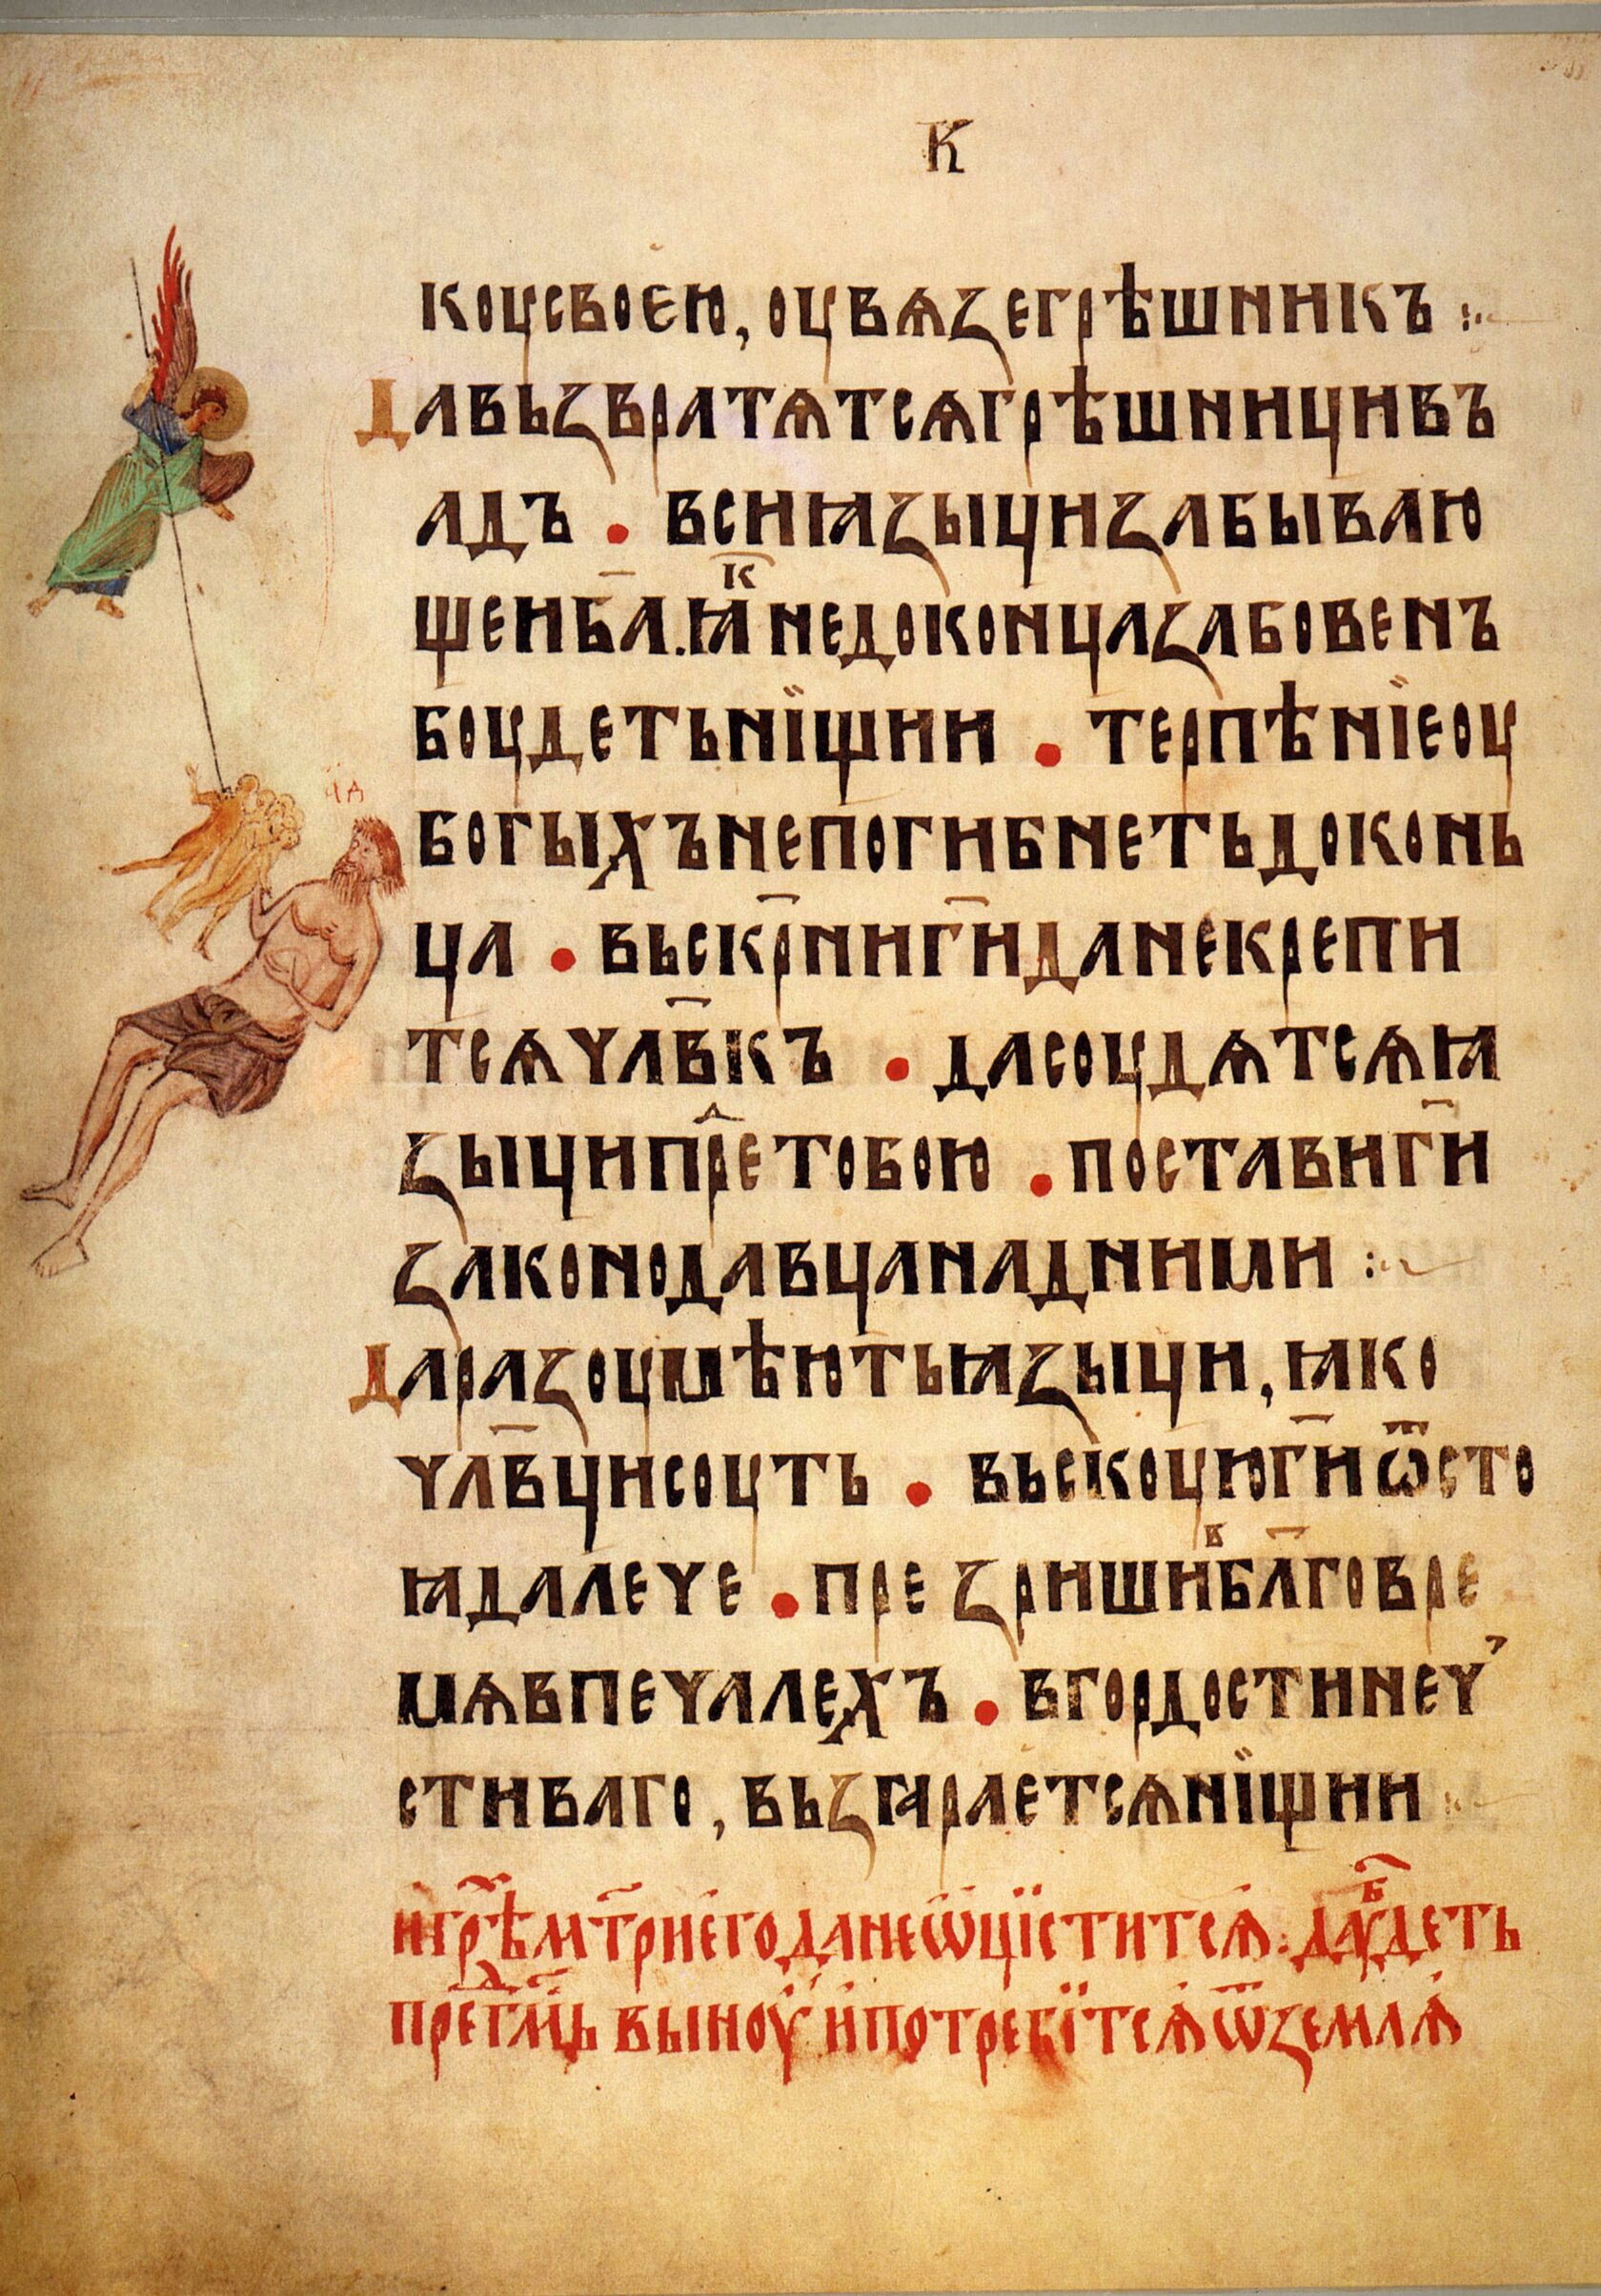 К
коꙋсвоею, оꙋвѧзегрѣшникъ :~
Давьзвратѧтсѧгрѣшницивъ
адъ • всиꙗзыцизабываю
щеиб҃а.ꙗⷦ҇недоконцазабовенъ
боꙋдетьнїщии • терпѣнїеоꙋ
богыхънепогибнетьдоконь
ца • вьскр҃ниг҃иданекрепи
тсѧчлв҃къ • дасоꙋдѧтсѧꙗ
зыципреⷣтобою • поставиг҃и
законодавцанадними :~
Даразоꙋмѣютьꙗзыци, ꙗко
члв҃цисоꙋть • вьскоꙋюг҃иѿсто
ꙗдалече • презришиⷡбл҃говре
мѧвпечалехъ • вгордостинеч
стиваго, вьзгараетсѧнїщии
игрⷯѣмт҃риегоданеѡцїститсѧ: даꙋⷠдеть
преⷣгⷭ҇мьвыноꙋипотребїтсѧѿземлѧ